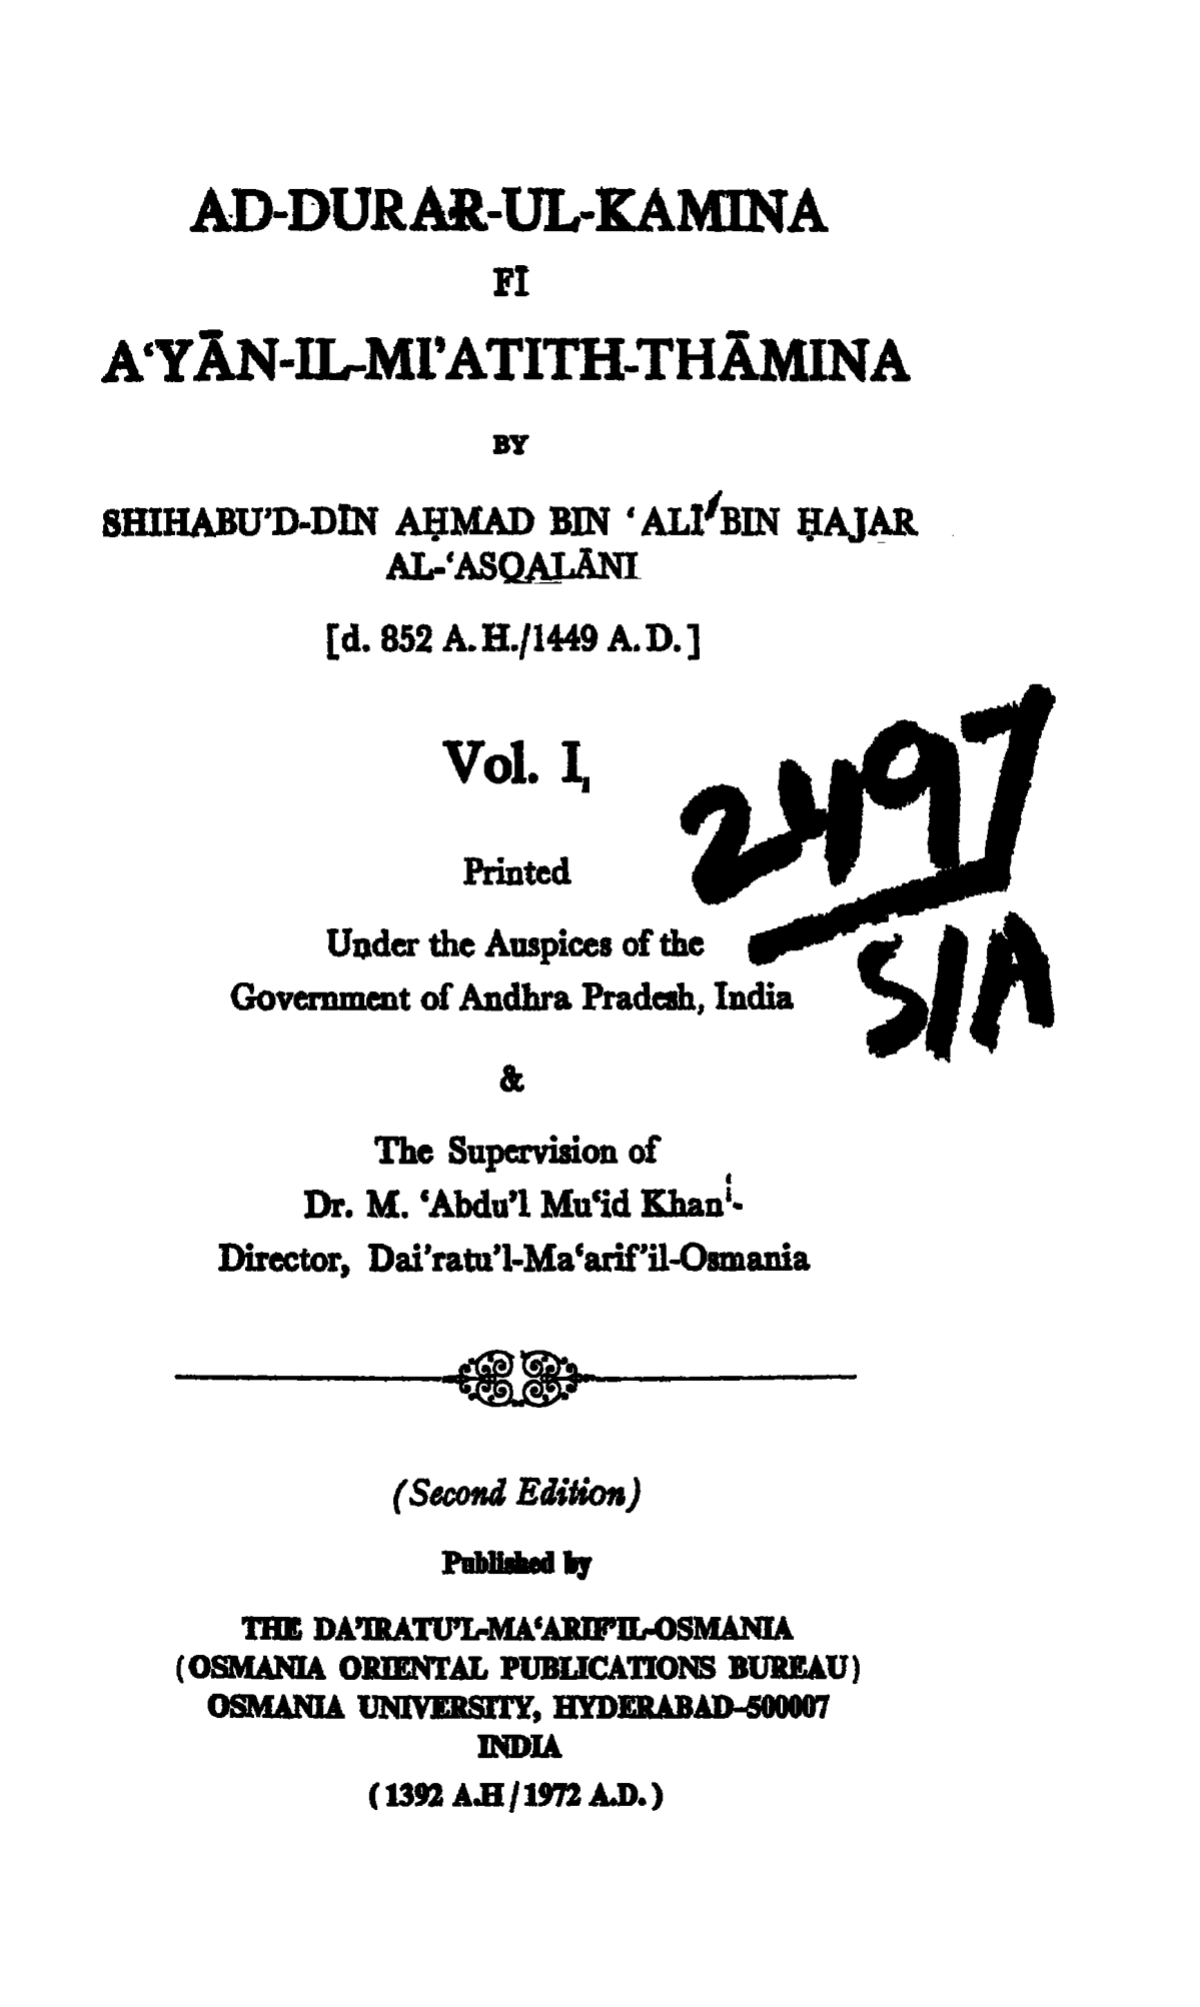 AD-DURAR-UL-KAMINA
FĪ
A‘YĀN-IL-MI’ATITH-THĀMINA
BY
SHIHABU’D-DĪN AḤMAD BIN ‘ALĪ BIN ḤAJAR
AL-‘ASQALĀNI
[d. 852 A.H./1449 A.D.]
Vol. I
2497
SIA
Printed
Under the Auspices of the
Government of Andhra Pradesh, India
&
The Supervision of
Dr. M. ‘Abdu’l Mu‘id Khan
Director, Dai’ratu’l-Ma‘arif’il-Osmania
(Second Edition)
Published by
THE DA’IRATU’L-MA‘ARIF’IL-OSMANIA
(OSMANIA ORIENTAL PUBLICATIONS BUREAU)
OSMANIA UNIVERSITY, HYDERABAD–500007
INDIA
(1392 A.H/1972 A.D.)